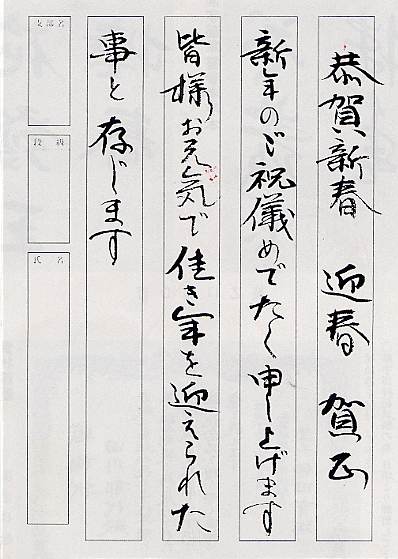 恭賀新春 迎春 賀正
新年のご祝儀めでたく申し上げます
皆様お元気で佳き年を迎えられた
事と存じます
支部名
段級
氏名